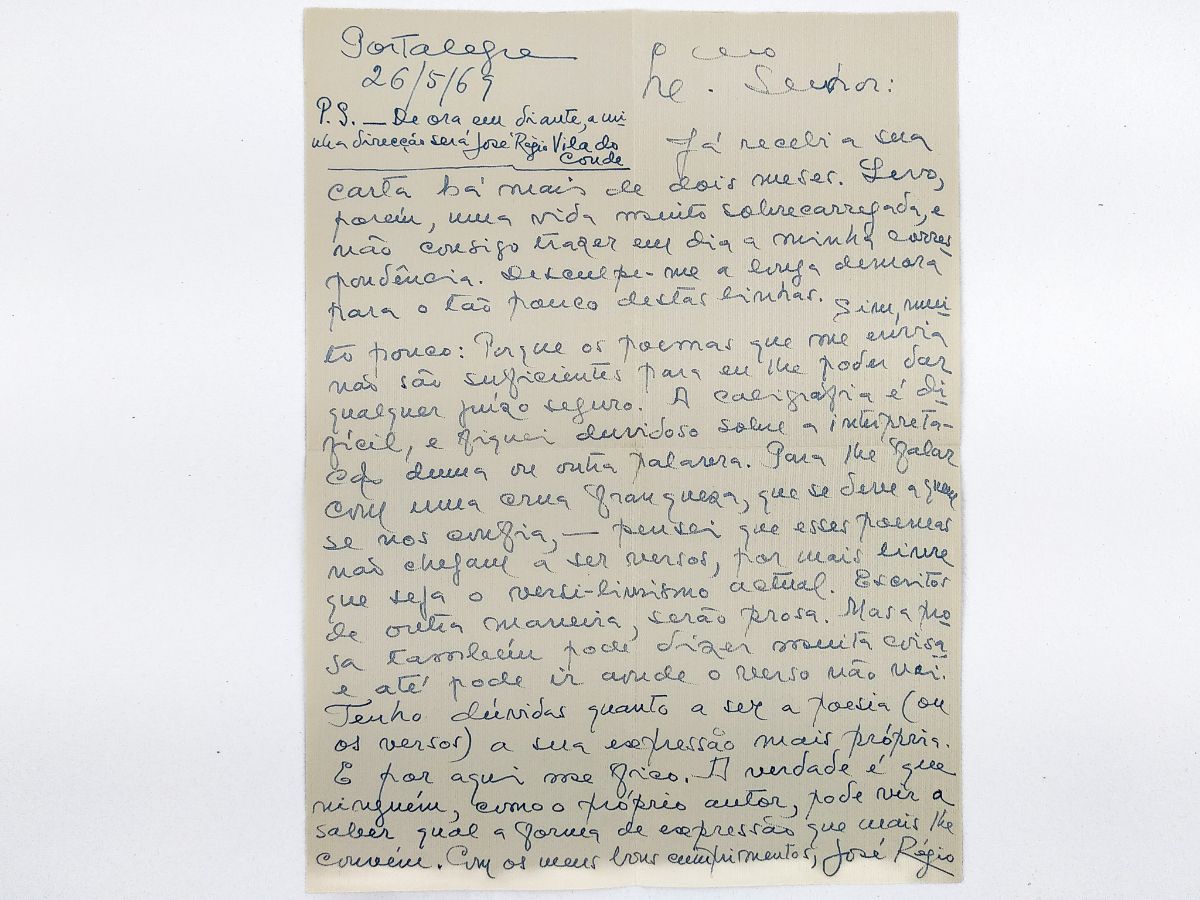 Portalegre
26/5/69
P.S. — De ora em diante, a mi-
nha direcção será José Régio Vila do
Conde
Senhor:
Já recebi a sua
carta há mais de dois meses. Levo,
porém, uma vida muito sobrecarregada, e
não consigo trazer em dia a minha corres-
pondência. Desculpe-me a longa demora
para o tão pouco destas linhas.
Sim, mui-
to pouco: Porque os poemas que me envia
não são suficientes para eu lhe poder dar
qualquer juízo seguro. A caligrafia é di-
fícil, e fiquei duvidoso sobre a interpreta-
ção duma ou outra palavra. Para lhe falar
com uma crua franqueza, que se deve a quem
se nos confia, — pensei que esses poemas
não chegam a ser versos, por mais livre
que seja o versi-livrismo actual. Escritos
de outra maneira, serão prosa. Mas a pro-
sa também pode dizer muita coisa
e até pode ir aonde o verso não vai.
Tenho dúvidas quanto a ser a poesia (ou
os versos) a sua expressão mais própria.
E por aqui me fico. A verdade é que
ninguém, como o próprio autor, pode vir a
saber qual a forma de expressão que mais lhe
convém. Com os meus bons cumprimentos, José Régio